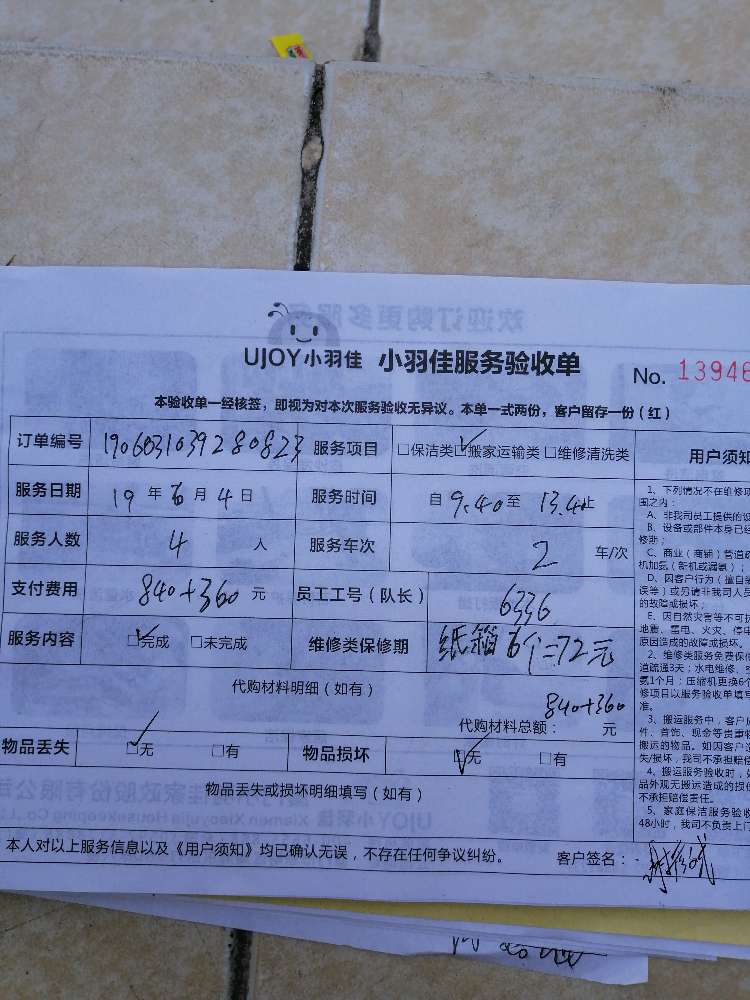 UJOY小羽佳 小羽佳服务验收单
No. 13946
本验收单一经核签，即视为对本次服务验收无异议。本单一式两份，客户留存一份（红）
订单编号 1906031039280823 服务项目 □保洁类 ☑搬家运输类 □维修清洗类
服务日期 19年6月4日 服务时间 自9:40至13:4止
服务人数 4人 服务车次 2车/次
支付费用 840+360元 员工工号（队长） 6336
服务内容 ☑完成 □未完成 维修类保修期 纸箱6个=72元
代购材料明细（如有）
840+360
代购材料总额： 元
物品丢失 ☑无 □有 物品损坏 ☑无 □有
物品丢失或损坏明细填写（如有）
本人对以上服务信息以及《用户须知》均已确认无误，不存在任何争议纠纷。 客户签名：
用户须知
1、下列情况不在维修项
围之内：
A、非我司员工提供的设
B、设备或部件本身已经
修断；
C、商业（商铺）管道疏
机加氨（新机或漏氨）；
D、因客户行为（擅自
误等）或另请非我司人员
的故障或损坏；
E、因自然灾害等不可抗
地震、雷电、火灾、停电
原因造成的故障或损坏。
2、维修类服务免费保修
道疏通3天；水电维修、空
氨1个月；压缩机更换6个
修项目以服务验收单填写
准。
3、搬运服务中，客户应
件、首饰、现金等贵重物
搬运的物品。如因客户
失/损坏，我司不承担赔偿
4、搬运服务验收时，如
品外观无搬运造成的损伤
不承担赔偿责任。
5、家庭保洁服务验收
48小时，我司不负责上门